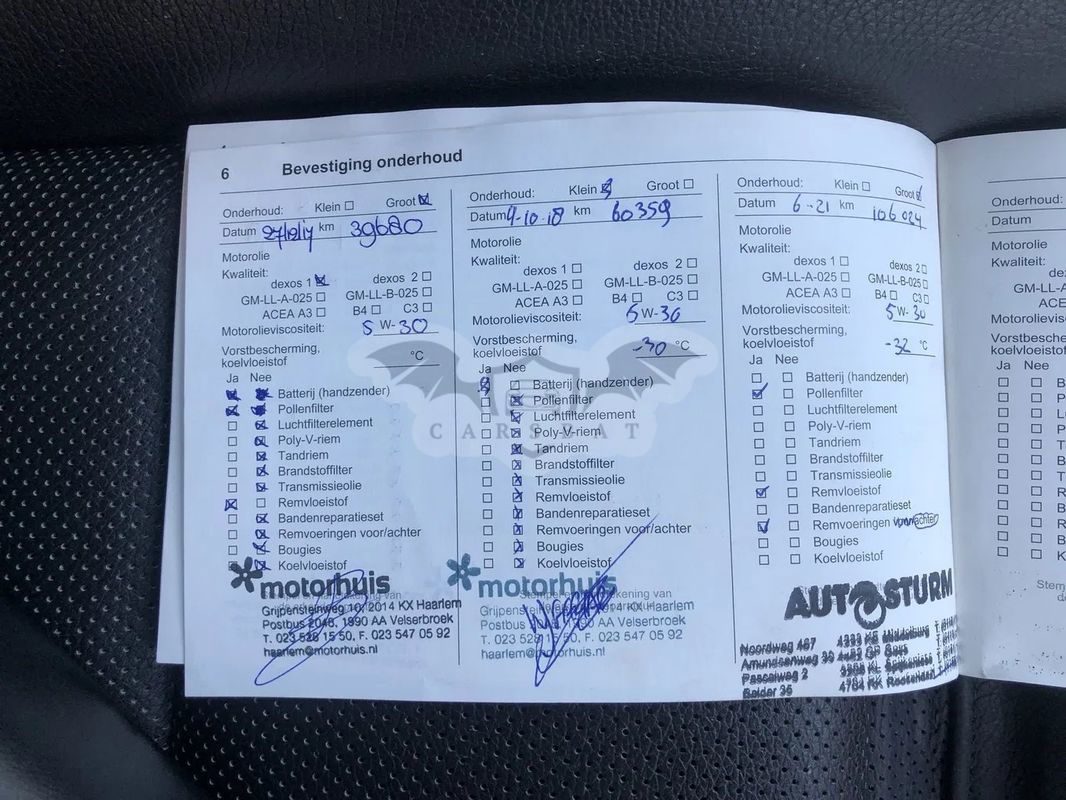 6 Bevestiging onderhoud
Onderhoud: Klein Groot
Datum 27/12/17 km 39680
Motorolie
Kwaliteit:
dexos 1 dexos 2
GM-LL-A-025 GM-LL-B-025
ACEA A3 B4 C3
Motorolieviscositeit: 5 W-30
Vorstbescherming,
koelvloeistof °C
Ja Nee
Batterij (handzender)
Pollenfilter
Luchtfilterelement
Poly-V-riem
Tandriem
Brandstoffilter
Transmissieolie
Remvloeistof
Bandenreparatieset
Remvoeringen voor/achter
Bougies
Koelvloeistof
motorhuis
Grijpensteinweg 10, 2014 KX Haarlem
Postbus 2048, 1990 AA Velserbroek
T. 023 528 15 50, F. 023 547 05 92
haarlem@motorhuis.nl
Onderhoud: Klein Groot
Datum 4-10-18 km 60359
Motorolie
Kwaliteit:
dexos 1 dexos 2
GM-LL-A-025 GM-LL-B-025
ACEA A3 B4 C3
Motorolieviscositeit: 5 W-30
Vorstbescherming,
koelvloeistof -30 °C
Ja Nee
Batterij (handzender)
Pollenfilter
Luchtfilterelement
Poly-V-riem
Tandriem
Brandstoffilter
Transmissieolie
Remvloeistof
Bandenreparatieset
Remvoeringen voor/achter
Bougies
Koelvloeistof
motorhuis
Grijpensteinweg KX Haarlem
Postbus AA Velserbroek
T. 023 528 15 50, F. 023 547 05 92
haarlem@motorhuis.nl
Onderhoud: Klein Groot
Datum 6-21 km 106024
Motorolie
Kwaliteit:
dexos 1 dexos 2
GM-LL-A-025 GM-LL-B-025
ACEA A3 B4 C3
Motorolieviscositeit: 5 W-30
Vorstbescherming,
koelvloeistof -32 °C
Ja Nee
Batterij (handzender)
Pollenfilter
Luchtfilterelement
Poly-V-riem
Tandriem
Brandstoffilter
Transmissieolie
Remvloeistof
Bandenreparatieset
Remvoeringen voor/achter
Bougies
Koelvloeistof
AUTOSTURM
Noordweg 467
Amundsenweg 39
Pascalweg 2
Belder 35
Onderhoud:
Datum
Motorolie
Kwaliteit:
GM-LL-A
ACE
Motorolieviscos
Vorstbescherm
koelvloeistof
Ja Nee
CARSBAT